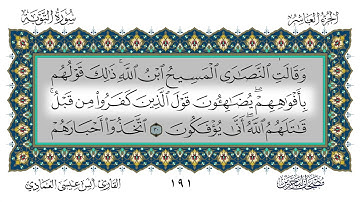 الجزء العاشر
سورة التوبة
وَقَالَتِ النَّصَارَى الْمَسِيحُ ابْنُ اللَّهِ ۖ ذَٰلِكَ قَوْلُهُم
بِأَفْوَاهِهِمْ ۖ يُضَاهِئُونَ قَوْلَ الَّذِينَ كَفَرُوا مِن قَبْلُ ۚ
قَاتَلَهُمُ اللَّهُ ۚ أَنَّىٰ يُؤْفَكُونَ ٣٠ اتَّخَذُوا أَحْبَارَهُمْ
١٩١
القارئ أنس عيسى العمادي